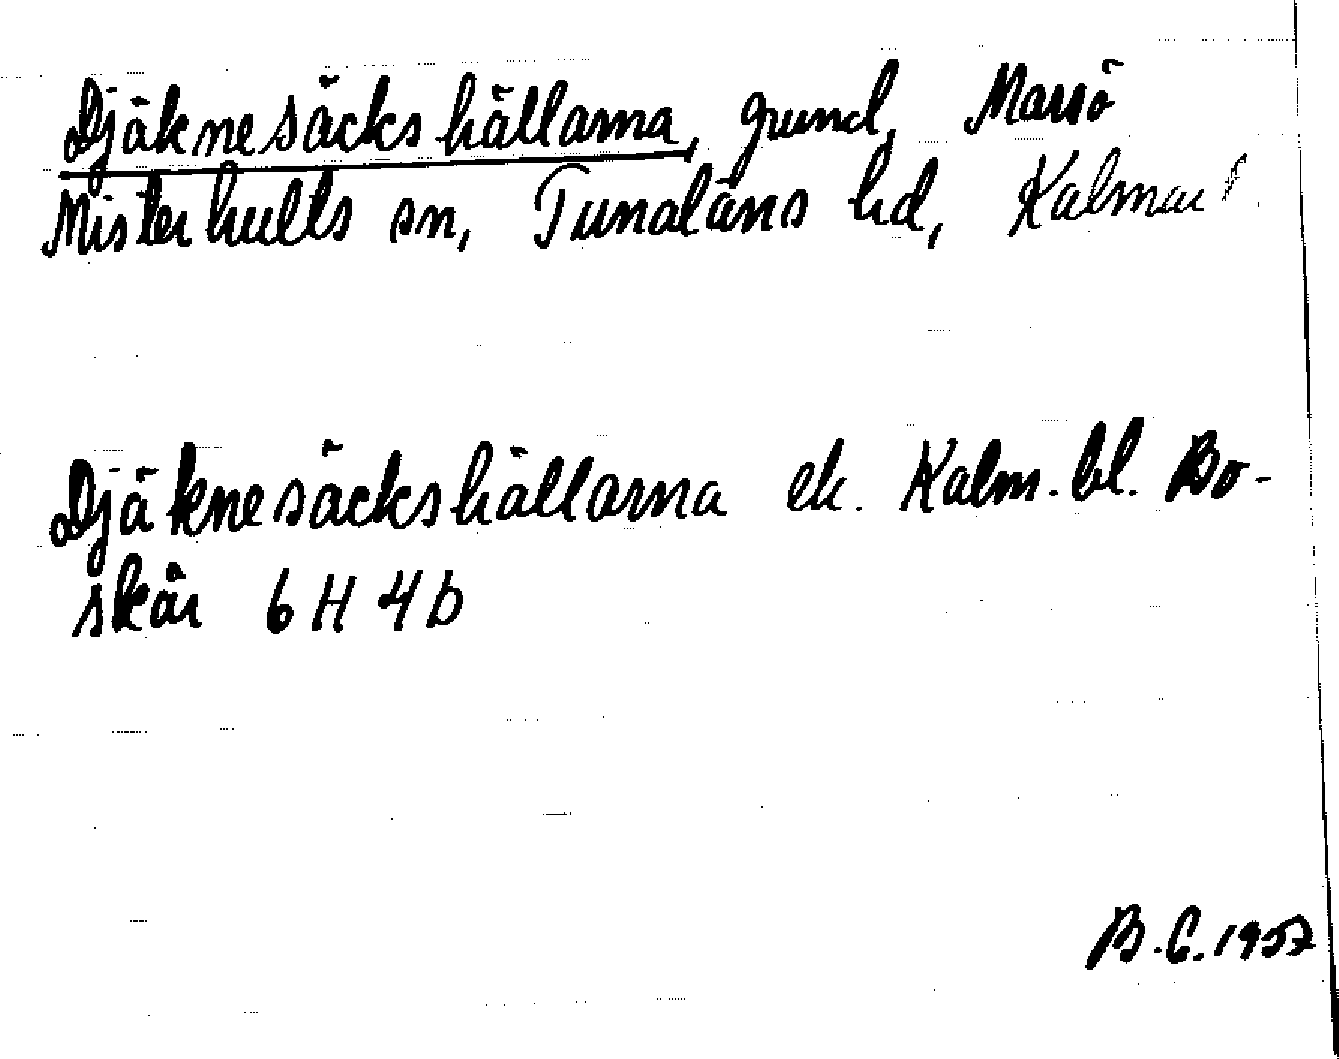 Djäknesäckshällarna, grund, Marsö
Misterhults sn, Tunaläns hd, Kalmar
Djäknesäckshällarna ek. Kalm. bl. Bo-
skär 6 H 4 b
B.G. 1957